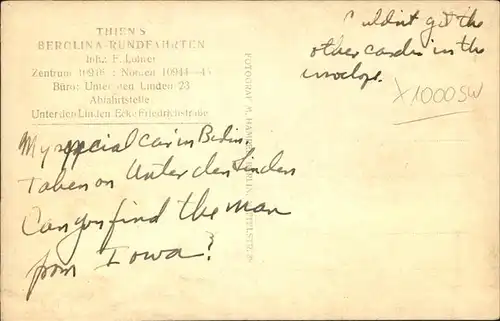 THIEN'S
BEROLINA-RUNDFAHRTEN
Inh.: F.
Zentrum : Norden 10944-45
Büro: Unter den Linden 23
Abfahrtstelle
Unter den Linden Ecke Friedrichstraße
Couldn't get the
other cards in the
invelope.
X1000SW
My special car in Berlin
Taken on Unter den Linden
Can you find the man
from Iowa?
FOTOGRAF M. BERLIN,